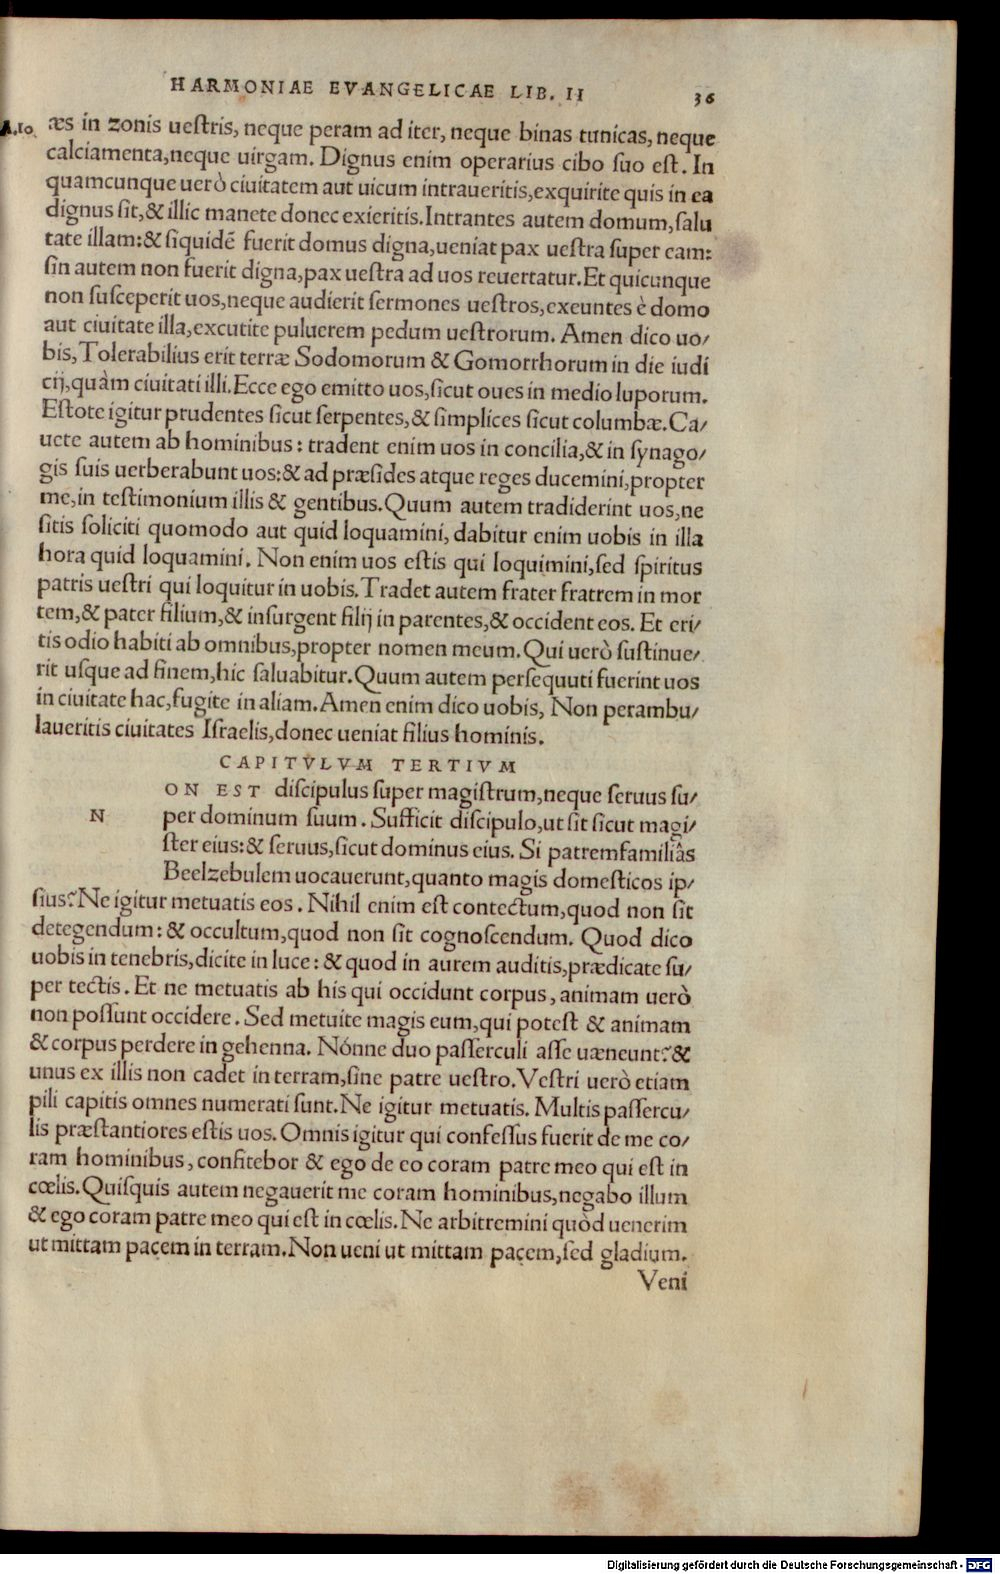 HARMONIAE EVANGELICAE LIB. II 36
A.10. æs in zonis uestris, neque peram ad iter, neque binas tunicas, neque
calciamenta,neque uirgam. Dignus enim operarius cibo suo est. In
quamcunque uerò ciuitatem aut uicum intraueritis,exquirite quis in ea
dignus sit,& illic manete donec exieritis.Intrantes autem domum,salu
tate illam:& siquidē fuerit domus digna,ueniat pax uestra super eam:
sin autem non fuerit digna,pax uestra ad uos reuertatur.Et quicunque
non susceperit uos,neque audierit sermones uestros,exeuntes è domo
aut ciuitate illa,excutite puluerem pedum uestrorum. Amen dico uo/
bis,Tolerabilius erit terræ Sodomorum & Gomorrhorum in die iudi
cij,quàm ciuitati illi.Ecce ego emitto uos,sicut oues in medio luporum.
Estote igitur prudentes sicut serpentes,& simplices sicut columbæ.Ca/
uete autem ab hominibus: tradent enim uos in concilia,& in synago/
gis suis uerberabunt uos:& ad præsides atque reges ducemini,propter
me,in testimonium illis & gentibus.Quum autem tradiderint uos,ne
sitis soliciti quomodo aut quid loquamini, dabitur enim uobis in illa
hora quid loquamini. Non enim uos estis qui loquimini,sed spiritus
patris uestri qui loquitur in uobis.Tradet autem frater fratrem in mor
tem,& pater filium,& insurgent filij in parentes,& occident eos. Et eri/
tis odio habiti ab omnibus,propter nomen meum.Qui uerò sustinue/
rit usque ad finem,hic saluabitur.Quum autem persequuti fuerint uos
in ciuitate hac,fugite in aliam.Amen enim dico uobis, Non perambu/
laueritis ciuitates Israelis,donec ueniat filius hominis.
CAPITVLVM TERTIVM
N ON EST discipulus super magistrum,neque seruus su/
per dominum suum. Sufficit discipulo,ut sit sicut magi/
ster eius:& seruus,sicut dominus eius. Si patremfamiliâs
Beelzebulem uocauerunt,quanto magis domesticos ip/
sius?Ne igitur metuatis eos. Nihil enim est contectum,quod non sit
detegendum: & occultum,quod non sit cognoscendum. Quod dico
uobis in tenebris,dicite in luce: & quod in aurem auditis,prædicate su/
per tectis. Et ne metuatis ab his qui occidunt corpus, animam uerò
non possunt occidere. Sed metuite magis eum,qui potest & animam
& corpus perdere in gehenna. Nónne duo passerculi asse uæneunt?&
unus ex illis non cadet in terram,sine patre uestro.Vestri uerò etiam
pili capitis omnes numerati sunt.Ne igitur metuatis. Multis passercu/
lis præstantiores estis uos.Omnis igitur qui confessus fuerit de me co/
ram hominibus, confitebor & ego de eo coram patre meo qui est in
cœlis.Quisquis autem negauerit me coram hominibus,negabo illum
& ego coram patre meo qui est in cœlis.Ne arbitremini quòd uenerim
ut mittam pacem in terram.Non ueni ut mittam pacem,sed gladium.
Veni
Digitalisierung gefördert durch die Deutsche Forschungsgemeinschaft - DFG